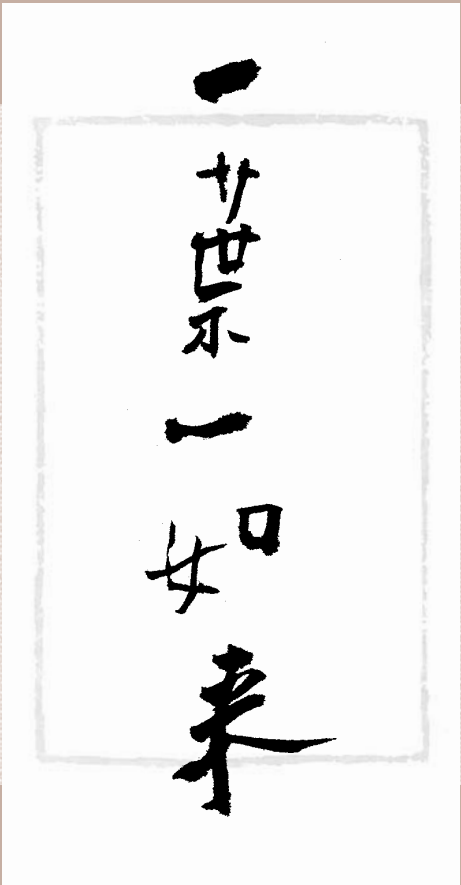 一葉一如来